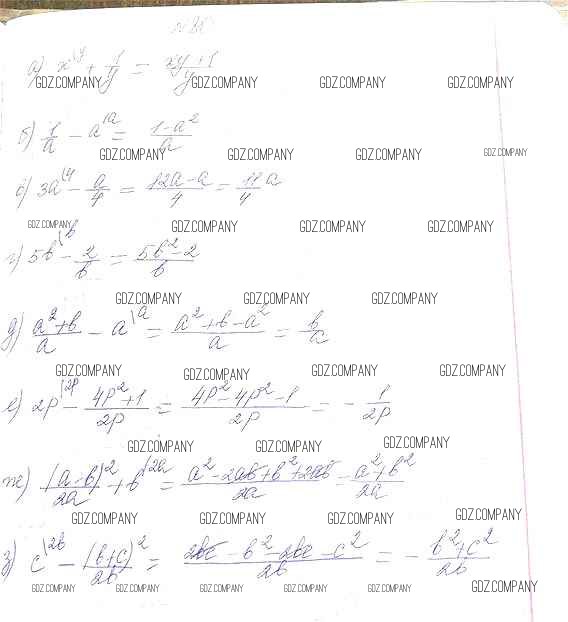 № 80
а) x^{\y} + 1/y = (xy+1)/y
GDZ.COMPANY GDZ.COMPANY GDZ.COMPANY GDZ.COMPANY
б) 1/a - a^{\a} = (1-a²)/a
GDZ.COMPANY GDZ.COMPANY GDZ.COMPANY GDZ.COMPANY
в) 3a^{\4} - a/4 = (12a-a)/4 = 11/4 a
GDZ.COMPANY GDZ.COMPANY GDZ.COMPANY GDZ.COMPANY
г) 5b^{\b} - 2/b = (5b²-2)/b
GDZ.COMPANY GDZ.COMPANY GDZ.COMPANY
д) (a²+b)/a - a^{\a} = (a²+b-a²)/a = b/a
GDZ.COMPANY GDZ.COMPANY GDZ.COMPANY GDZ.COMPANY
е) 2p^{\2p} - (4p²+1)/2p = (4p²-4p²-1)/2p = - 1/2p
GDZ.COMPANY GDZ.COMPANY GDZ.COMPANY
ж) (a-b)²/2a + b^{\2a} = (a²-2ab+b²+2ab)/2a = (a²+b²)/2a
GDZ.COMPANY GDZ.COMPANY GDZ.COMPANY GDZ.COMPANY
з) c^{\2b} - (b+c)²/2b = (2bc-b²-2bc-c²)/2b = - (b²+c²)/2b
GDZ.COMPANY GDZ.COMPANY GDZ.COMPANY GDZ.COMPANY GDZ.COMPANY